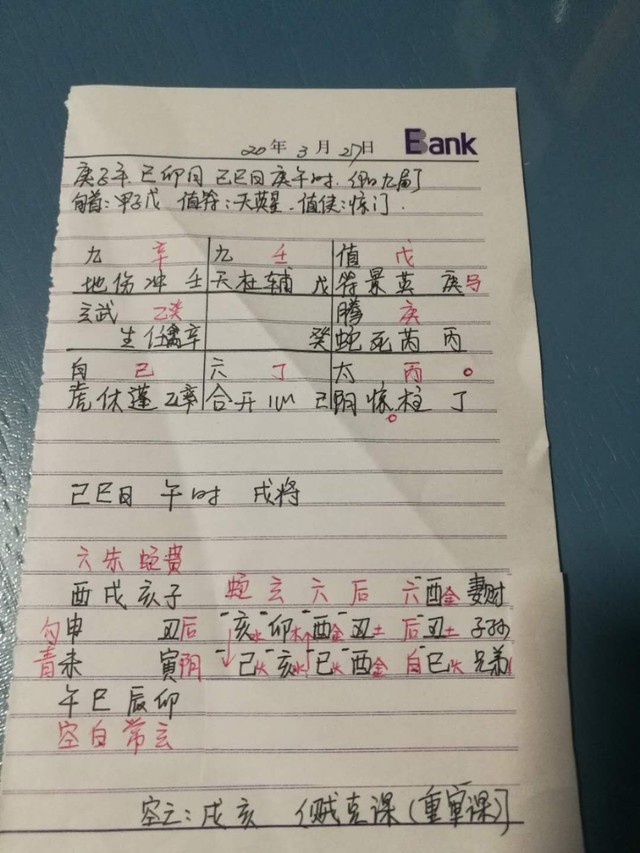 Bank
20年3月27日
庚子年 己卯月 己巳日 庚午时 阳九局
旬首:甲子戊 值符:天英星 值使:惊门
九 辛 九 壬 值 戊
地伤冲 壬 天杜辅 戊 符景英 庚 马
玄武 乙癸 腾 庚
生任禽辛 癸 蛇死芮 丙
白 己 六 丁 太 丙
虎休蓬 乙 合开心 己 阴惊柱 丁
己巳日 午时 戌将
六朱蛇贵
酉戌亥子 蛇玄六后 六酉金 妻财
勾申 丑后 亥水卯木酉金丑土 后丑土 子孙
青未 寅阴 己火亥水巳火酉金 白巳火 兄弟
午巳辰卯
空白常玄
空亡:戌亥 贼克课(重审课)